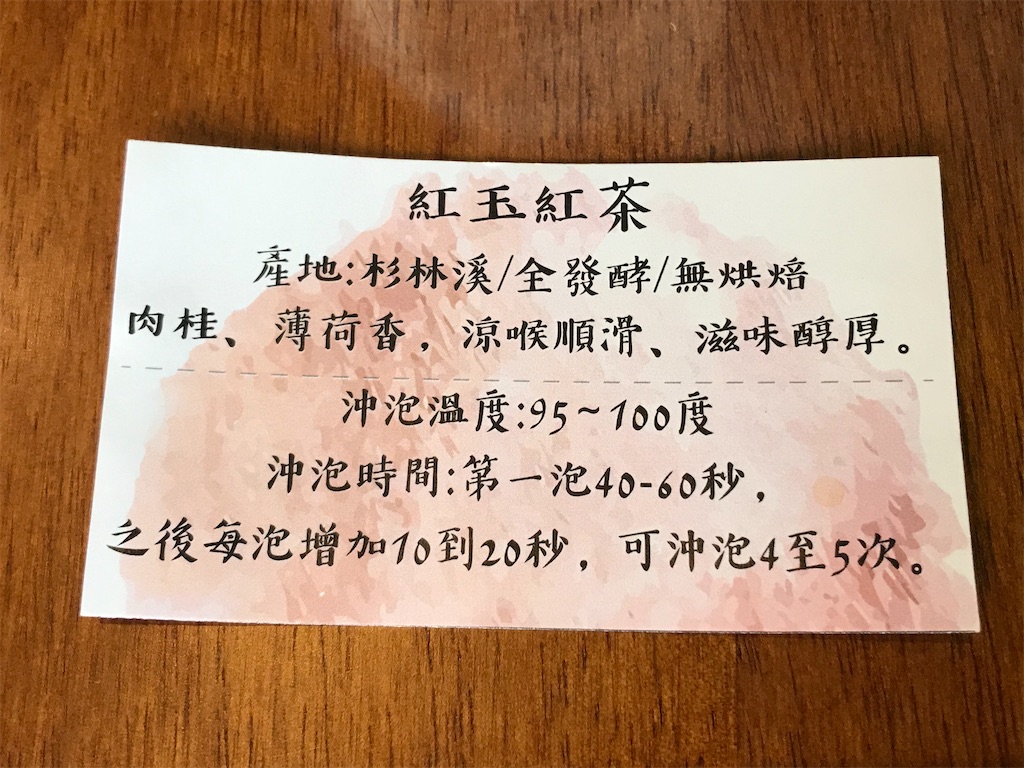 紅玉紅茶
產地:杉林溪/全發酵/無烘焙
肉桂、薄荷香，涼喉順滑、滋味醇厚。
沖泡溫度:95~100度
沖泡時間:第一泡40-60秒，
之後每泡增加10到20秒，可沖泡4至5次。